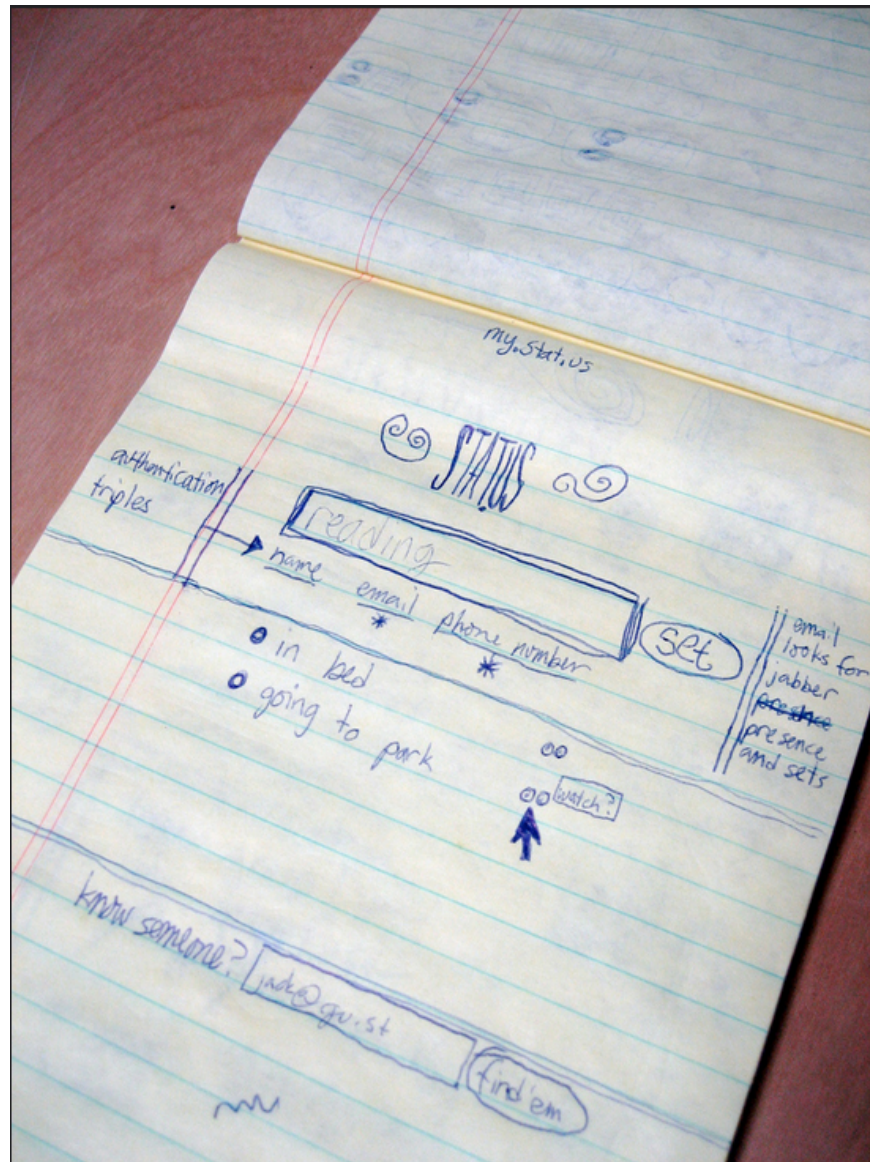 my.stat.us
STATUS
authentication
triples
reading
name email phone number
* *
set
email
looks for
jabber
presence
presence
and sets
in bed
going to park
watch?
know someone?
jack@gu.st
find'em